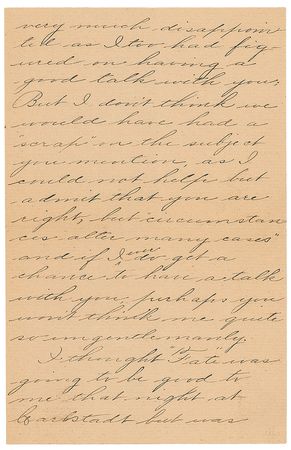 very much disappoin-
ted as I too had fig-
ured on having a
good talk with you;
But I don't think we
would have had a
"scrap" on the subject
you mention, as I
could not help but
admit that you are
right, but circumstan
ces alter many cases"
and if I ever do get a
chance to have a talk
with you, perhaps you
won't think me quite
so ungentlemanly.
I thought "Fate" was
going to be good to
me that night at
Carlstadt but was